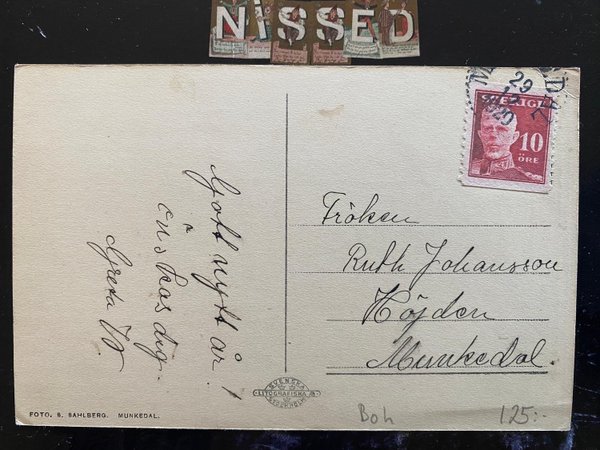 NISSED
29
12
1920
SVERIGE
10
ÖRE
Gott nytt år!
önskas dig.
Greta
Fröken
Ruth Johansson
Höjden
Munkedal.
SVENSKA
LITOGRAFISKA AB
STOCKHOLM
FOTO. S. SAHLBERG. MUNKEDAL.
Boh
125:-